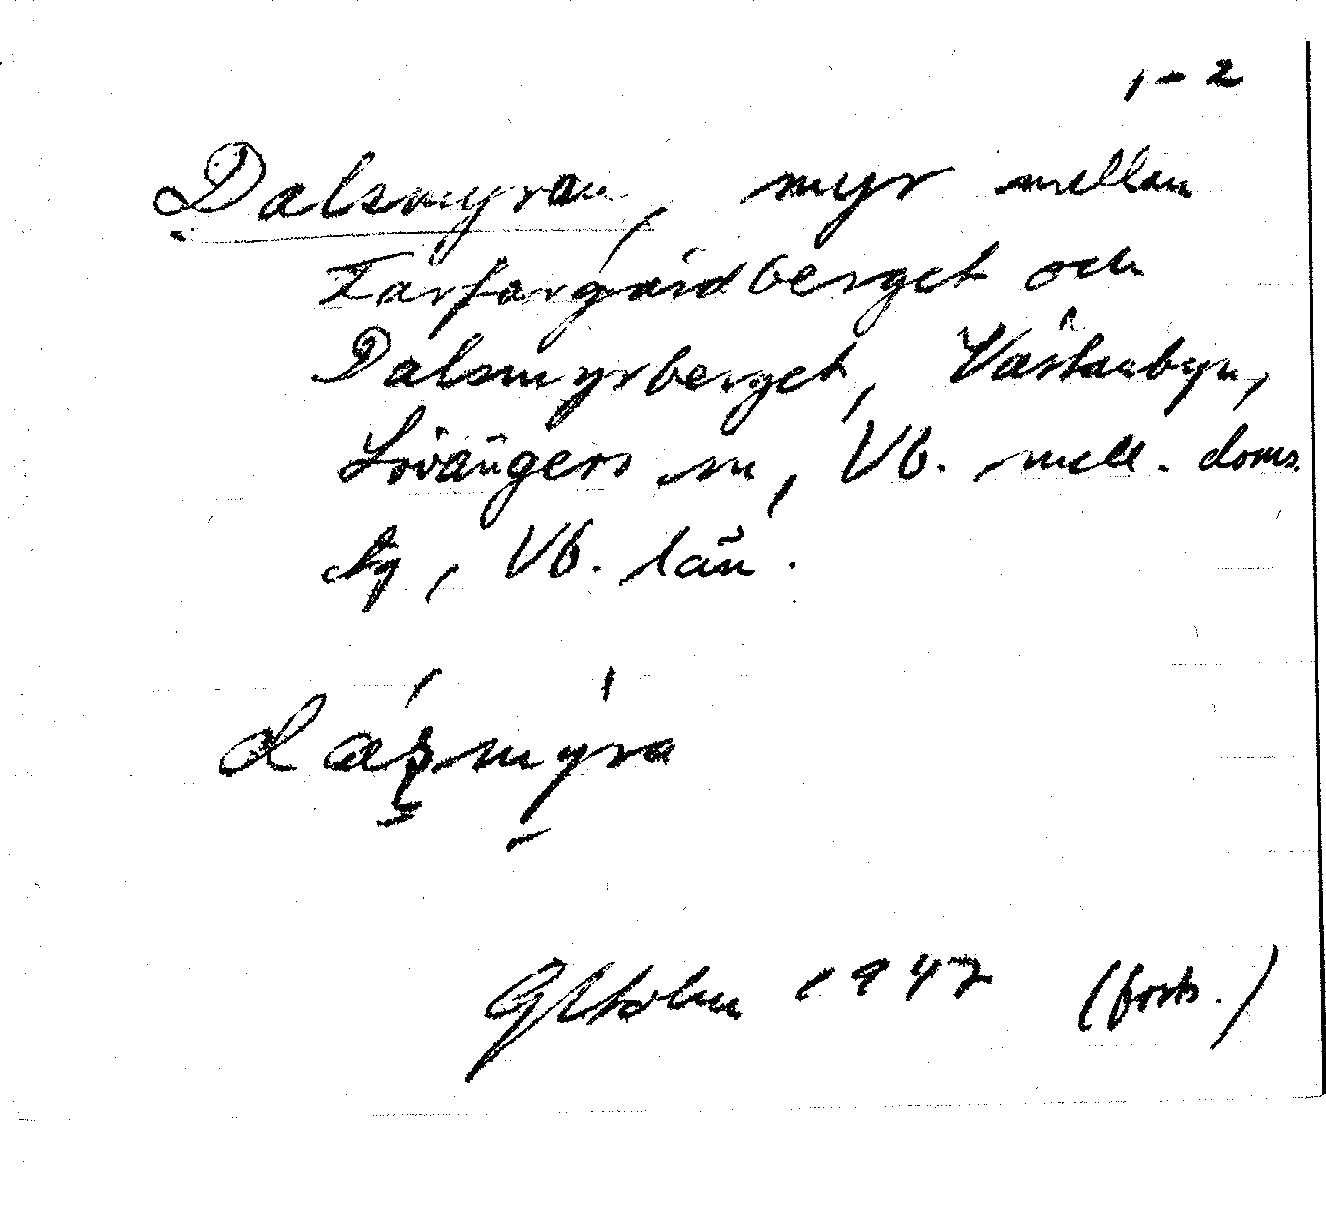 1-2
Dalsmyran, myr mellan
Farfargårdberget och
Dalsmyrberget, Västanbyn,
Lövångers sn, Vb. mell. doms.
sg, Vb. län.
GHolm 1947 (forts.)